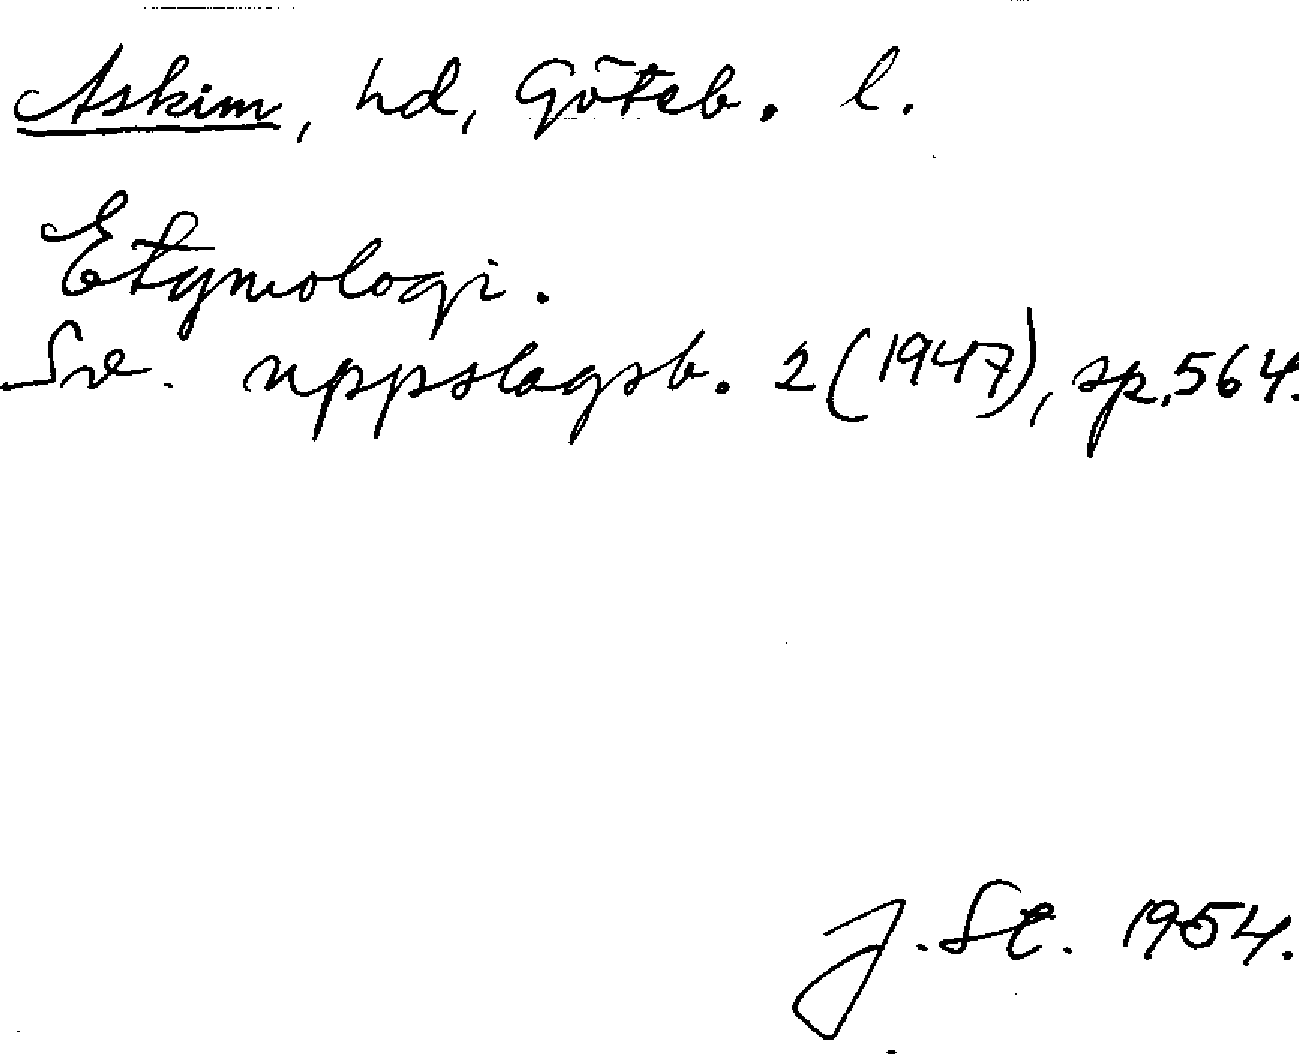 Askim, hd, Göteb. l.
Etymologi.
Sv. uppslagsb. 2 (1947), sp. 564.
J. Sc. 1954.